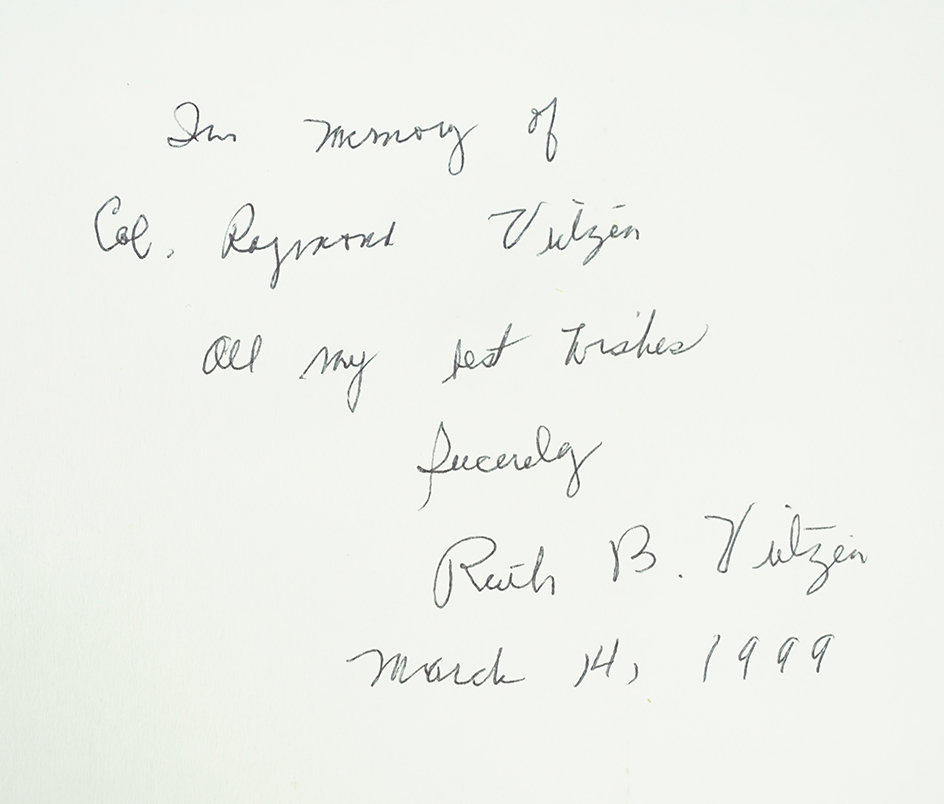 In Memory of
Col. Raymond Vietzen
All my best wishes
Sincerely
Ruth B. Vietzen
March 14, 1999